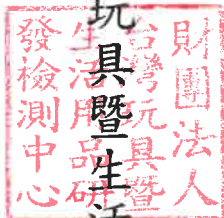 財團法人
台灣玩具暨
生活用品研
發檢測中心
玩具暨生活